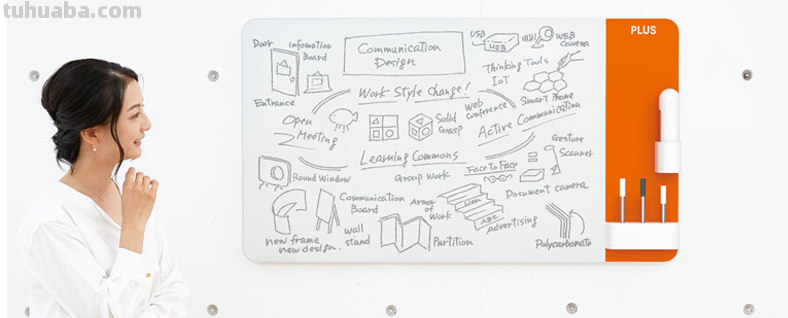 tuhuaba.com
PLUS
Communication
Design
Door
Infomation
Board
Entrance
USB
HUB
WEB
Camera
Thinking Tools
IoT
Smart Phone
Work Style Change!
Open
Meeting
Solid
Grasp
Web
conference
Active Communication
Learning Commons
Group Work
Face to Face
Gesture
Scanner
Round Window
Document camera
Communication
Board
Armor of
Work
advertising
new frame
new design.
wall
stand
Partition
Polycarbonate